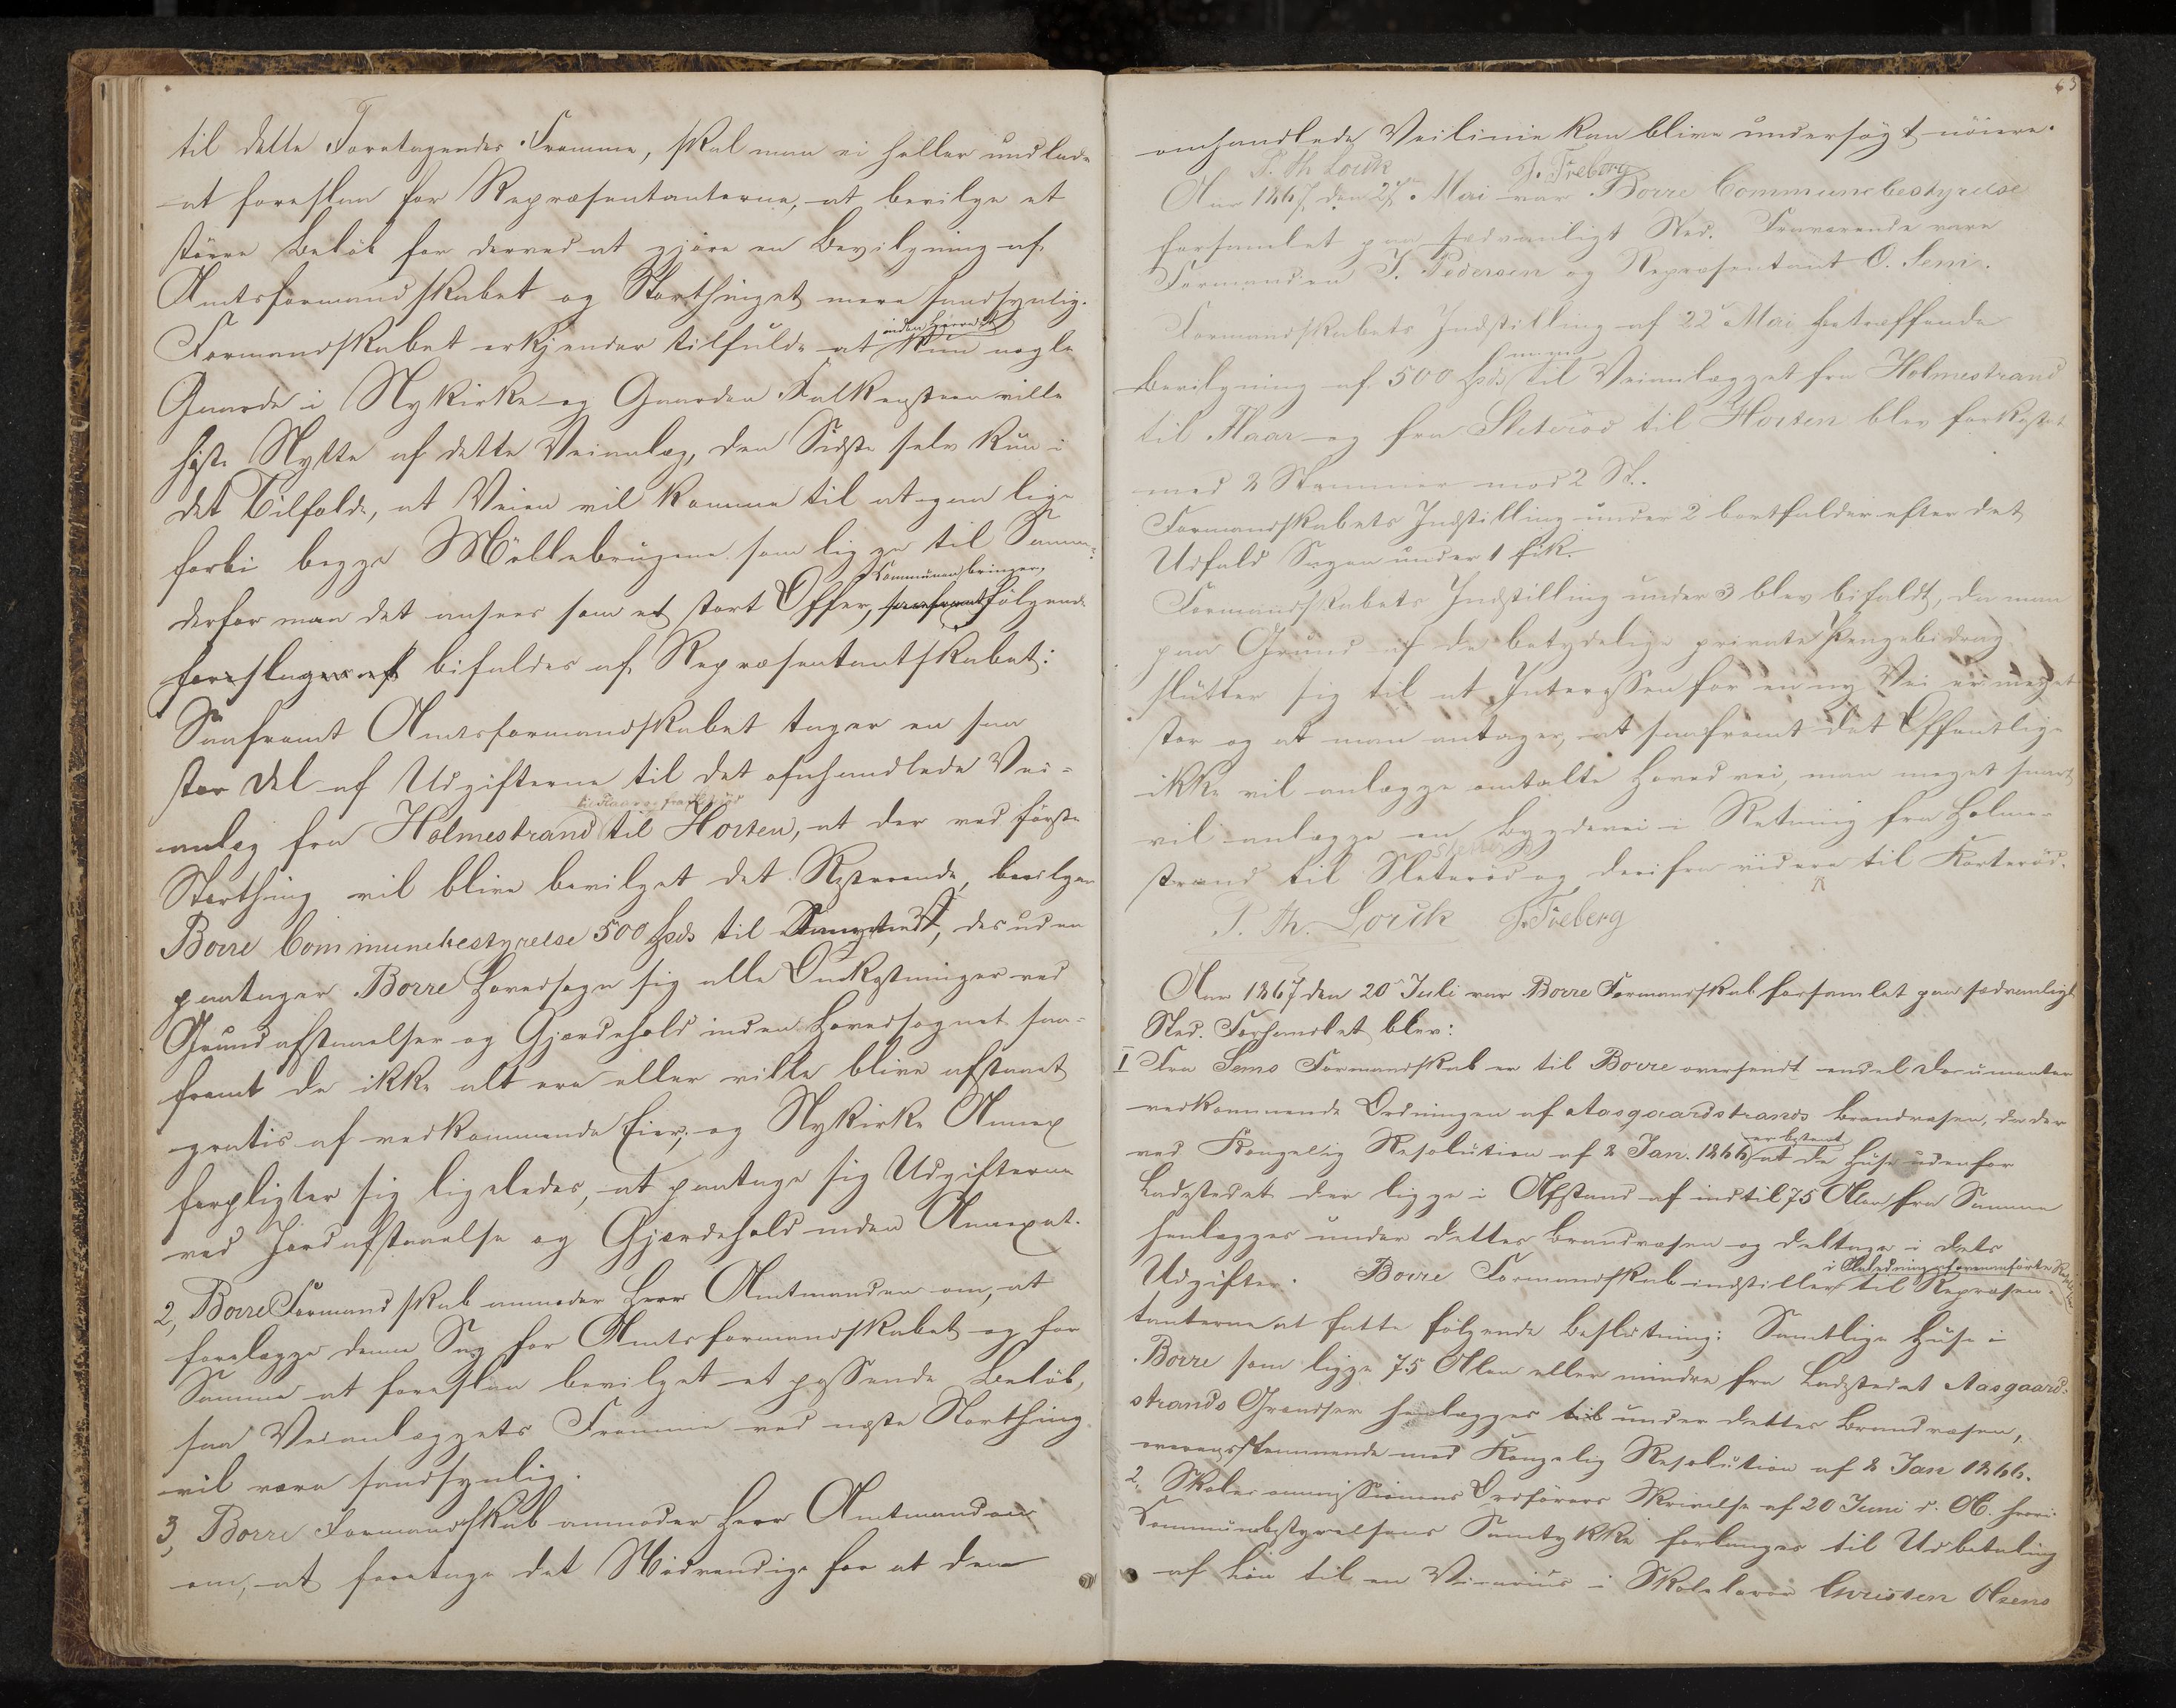 til dette Foretagendes Fremme, skal man ei heller undlade
at foreslaa for Repræsentanterne, at bevilge et
større Beløb for derved at gjøre en Bevilgning af
Amtsformandskabet og Storthinget mere sandsynlig.
Formandskabet erkjender tilfulde at kun nogle
inden Herredet
Gaarde i Nykirke og Gaarden Falkensteen ville
høste Nytte af dette Veianlæg, den Sidste selv kun i
det Tilfælde, at Veien vil komme til at gaa lige
forbi begge Møllebrugene som ligge til Samme
derfor maa det ansees som et stort Offer, Kommunen bringer, saafremt følgende
foreslages at bifaldes af Repræsentantskabet:
Saafremt Amtsformandskabet tager en saa
stor Del af Udgifterne til det omhandlede Vei-
til Flaar og fra Sletterød
anlæg fra Holmestrand til Horten, at der ved første
Storthing vil blive bevilget det Resterende, bevilger
Borre Communebestyrelse 500 Spd til, desuden
paatager Borre Hovedsogn sig alle Omkostninger ved
Grundafstaaelser og Gjerdehold inden Hovedsognet saa-
fremt de ikke alt ere eller ville blive afstaaet
gratis af vedkommende Eier, og Nykirke Annex
forpligter sig ligeledes, at paatage sig Udgifterne
ved Jordafstaaelse og Gjærdehold inden Annexet.
2, Borre Formandskab anmoder Herr Amtmanden om, at
forelægge denne Sag for Amtsformandskabet og for
Samme at foreslaa bevilget et passende Beløb,
saa Veianlæggets Fremme ved næste Storthing
vil være sandsynlig.
3, Borre Formandskab anmoder Herr Amtmanden
om, at foretage det Nødvendige for at den
63
omhandlede Veilinie kan blive undersøgt nøiere.
P. Th. Lorck J. Freberg
Aar 1867 den 27 Mai var Borre Communebestyrelse
forsamlet paa sædvanligt Sted. Fraværende vare
Formanden J. Pedersen og Repræsentant O. Semi.
Formandskabets Indstilling af 22 Mai betræffende
Bevilgning af 500 Spd til Veianlægget fra Holmestrand
til Flaar og fra Sleterød til Horten blev forkastet
med 2 Stemmer mod 2 St.
Formandskabets Indstilling under 2 bortfalder efter det
Udfald Sagen under 1 fik.
Formandskabets Indstilling under 3 blev bifaldt, da man
paa Grund af de betydelige private Pengebidrag
slutter sig til at Interessen for en ny Vei er meget
stor og at man antager, at saafremt det Offentlige
ikke vil anlægge omtalte Hovedvei, man meget snart
vil anlægge en Bygdevei i Retning fra Holme-
strand til Sleterød og derifra videre til Korterød.
P. Th. Lorck J. Freberg
Aar 1867 den 20 Juli var Borre Formandskab forsamlet paa sædvanligt
Sted. Forhandlet blev:
I Fra Sems Formandskab er til Borre oversendt endel Documenter
vedkommende Ordningen af Aasgaardstrands Brandvæsen, da der
ved Kongelig Resolution af 2 Jan. 1866 er bestemt at de Huse udenfor
Ladestedet der ligge i Afstand af indtil 75 Alen fra Samme
henlægges under dettes Brandvæsen og deltage i dets
Udgifter. Borre Formandskab indstiller i Anledning af ovenanførte Resolution til Repræsen-
tanterne at fatte følgende Beslutning: Samtlige Huse i
Borre som ligge 75 Alen eller mindre fra Ladestedet Aasgaard-
strands Grændser henlægges til under dettes Brandvæsen,
overensstemmende med Kongelig Resolution af 2 Jan 1866.
2, Skolecommissionens Ordførers Skrivelse af 20 Juni d. A. hvori
Kommunebestyrelsens Samtykke forlanges til Udbetaling
af Løn til en Vicarius i Skolelærer Christen Olsens